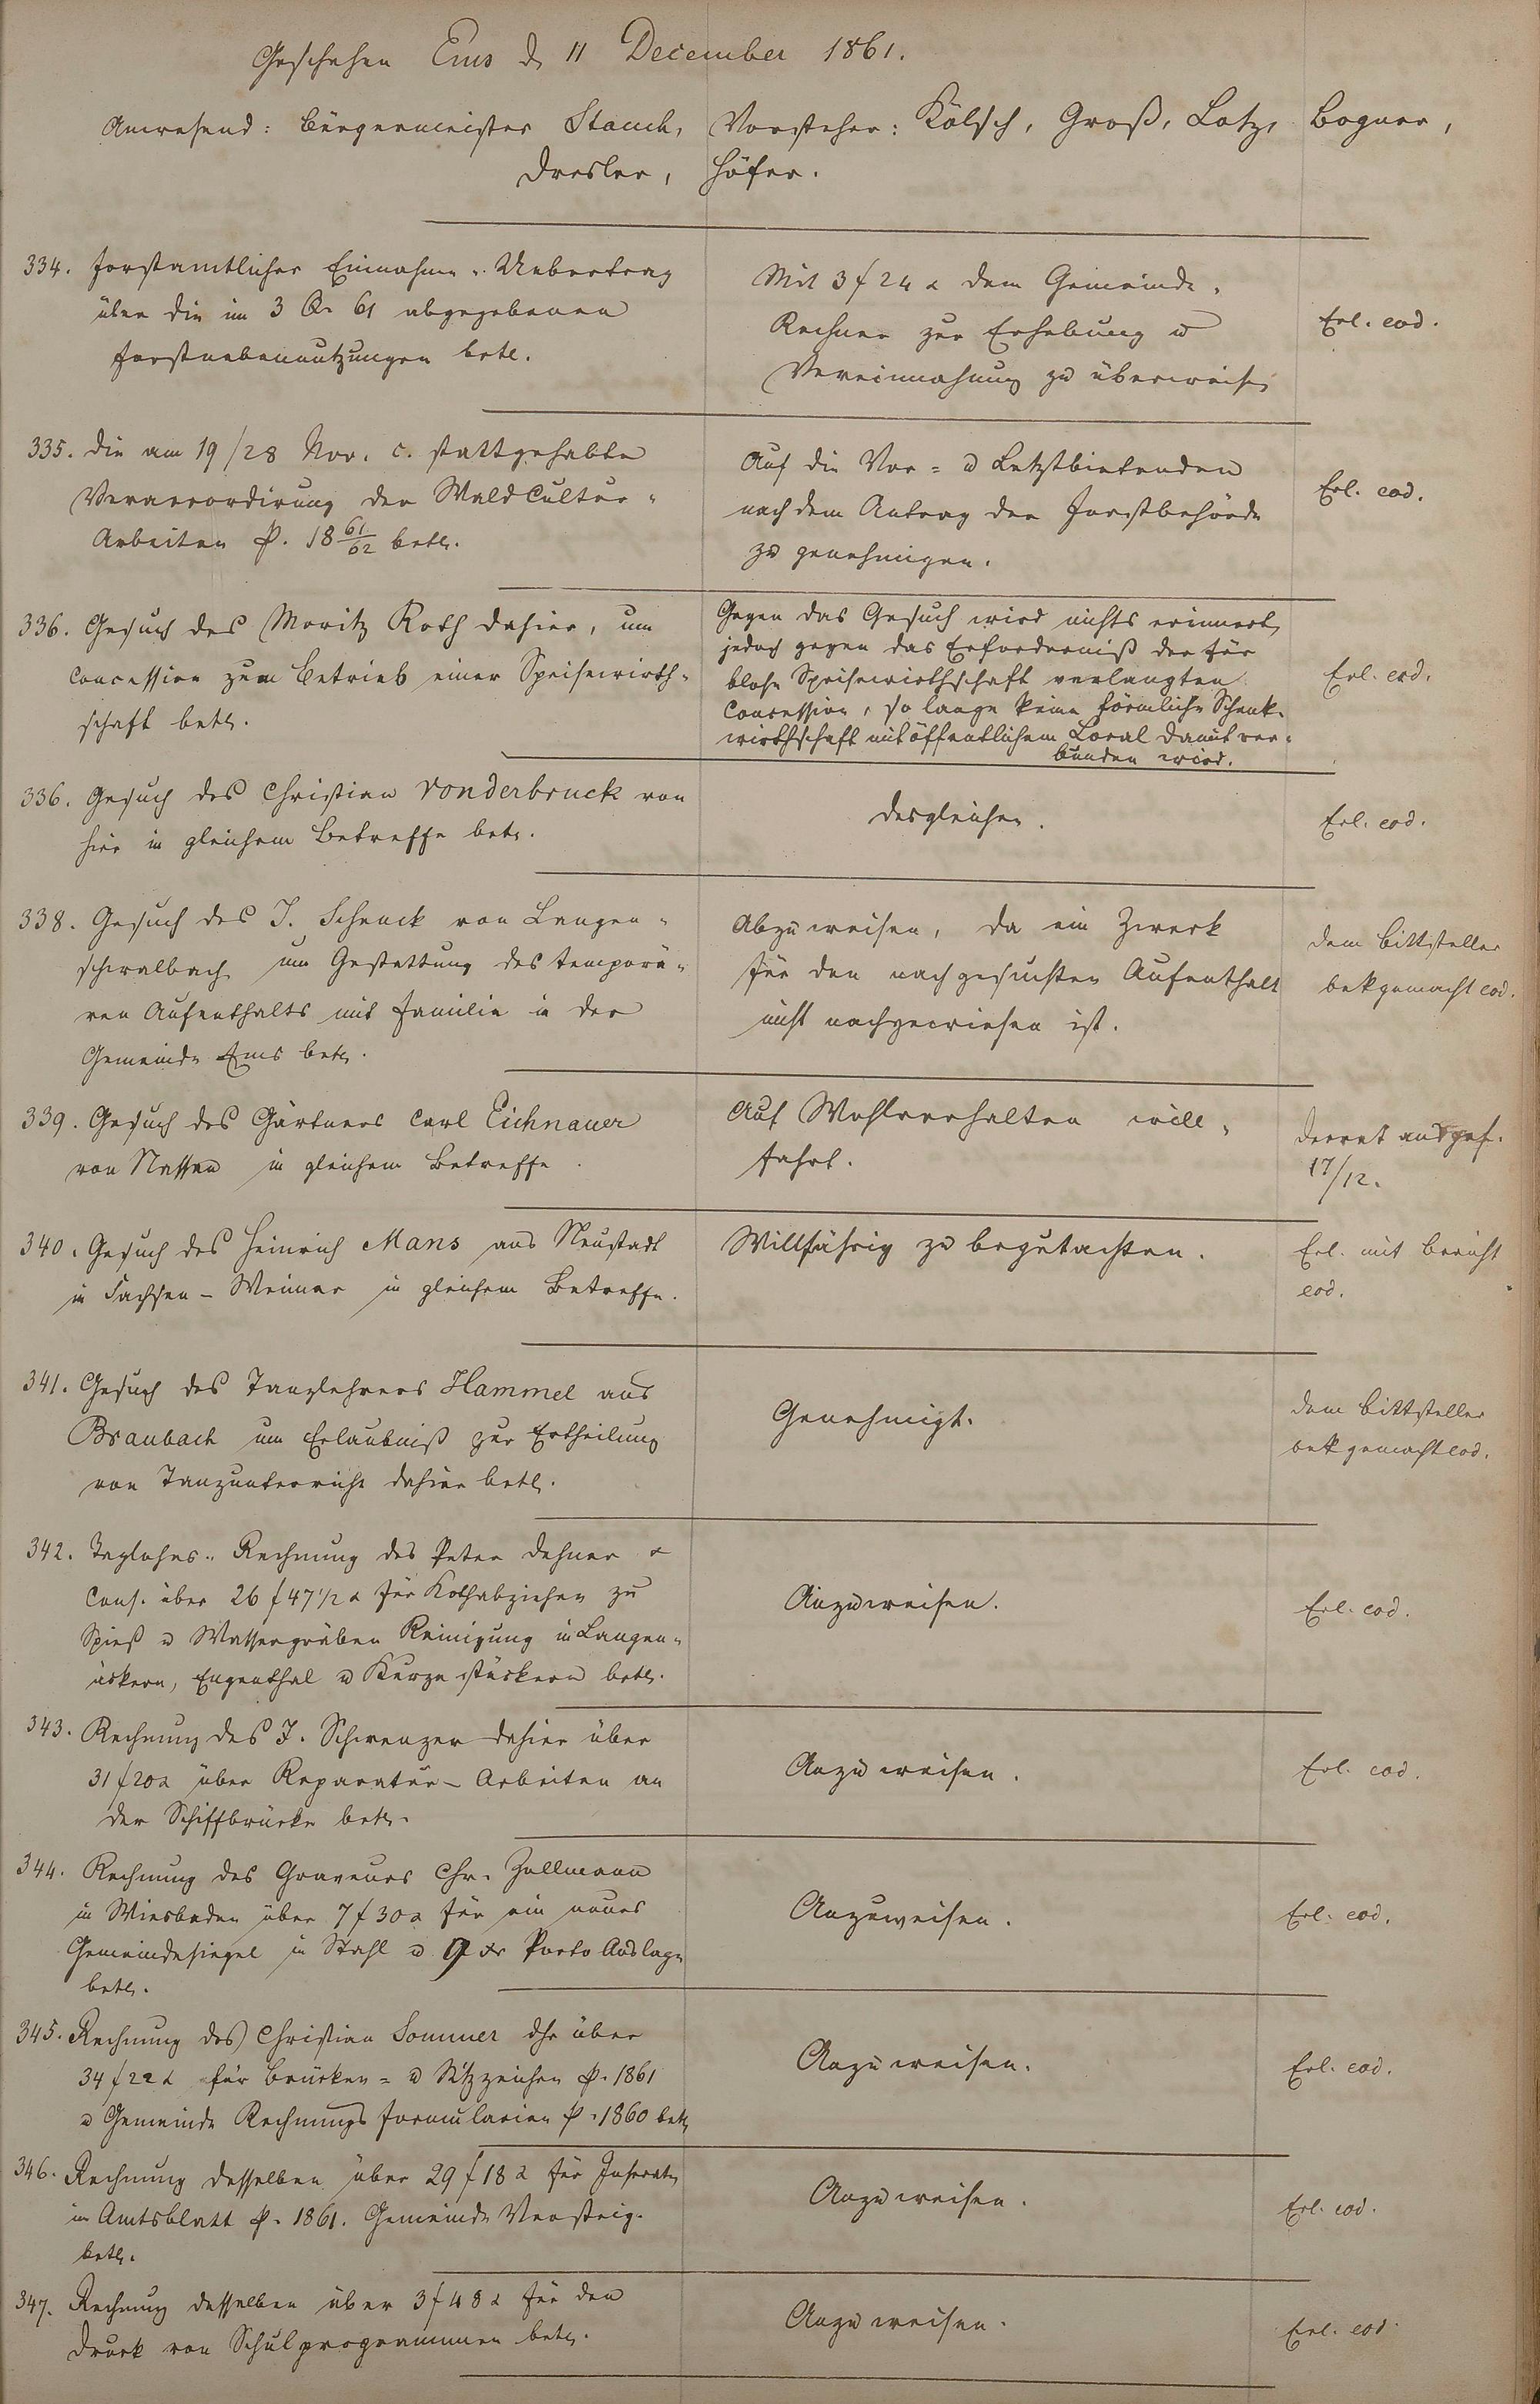 Geschehen Ems d 11 December 1861.
Anwesend: Bürgermeister Stauch, Vorsteher: Kölsch, Groß, Lotz, Bogner,
Dresler, Höfer.
334. Forstamtlicher Einnahme-Uebertrag
über die im 3 Qr 61 abgegebenen
Forstnebennutzungen betr.
Mit 3 f 24 x dem Gemeinde-
Rechner zur Erhebung u
Vereinnahmung zu überweisen
Erl. eod.
335. Die am 19/28 Nov. c. stattgehabte
Veraccordirung der Wald Cultur-
Arbeiten p. 18 61/62 betr.
Auf die Vor- u Letztbietenden
nach dem Antrag der Forstbehörde
zu genehmigen.
Erl. eod.
336. Gesuch des Moritz Roth dahier, um
Concession zum Betrieb einer Speisewirth-
schaft betr.
Gegen das Gesuch wird nichts erinnert,
jedoch gegen das Erforderniß der für
blose Speisewirthschaft verlangten
Concession, so lange keine förmliche Schenk-
wirthschaft mit öffentlichem Local damit ver-
bunden wird.
Erl. eod.
336. Gesuch des Christian Vonderbruck von
hier in gleichem Betreffe betr.
Desgleichen.
Erl. eod.
338. Gesuch des J. Schenck von Langen-
schwalbach um Gestattung des temporä-
ren Aufenthalts mit Familie in der
Gemeinde Ems betr.
Abzuweisen, da ein Zweck
für den nachgesuchten Aufenthalt
nicht nachgewiesen ist.
Dem Bittsteller
bekgemacht eod.
339. Gesuch des Gärtners Carl Eichnauer
von Nassau in gleichem Betreffe.
Auf Wohlverhalten will-
fahrt.
Decret ausgef.
17/12.
340. Gesuch des Heinrich Mans aus Neustadt
in Sachsen-Weimar in gleichem Betreffe.
Willfährig zu begutachten.
Erl. mit Bericht
eod.
341. Gesuch des Tanzlehrers Hammel aus
Braubach um Erlaubniß zur Ertheilung
von Tanzunterricht dahier betr.
Genehmigt.
Dem Bittsteller
bekgemacht eod.
342. Taglohns-Rechnung des Peter Dehner &
Cons. über 26 f 47 1/2 x für Kothabziehen zu
Spieß u Wassergräben Reinigung in Langen-
äckern, Engenthal u Kurzestückern betr.
Anzuweisen.
Erl. eod.
343. Rechnung des J. Schwenzer dahier über
31 f 20 x über Reparatur-Arbeiten an
der Schiffbrücke betr.
Anzuweisen.
Erl. eod.
344. Rechnung des Graveurs Chr. Zollmann
in Wiesbaden über 7 f 30 x für ein neues
Gemeindesiegel in Stahl u 9 xr Porto Auslage
betr.
Anzuweisen.
Erl. eod.
345. Rechnung des Christian Sommer dhr über
34 f 22 x für Brücken- u Sitzzeichen p. 1861
u Gemeinde Rechnungs Formularien p. 1860 betr
Anzuweisen.
Erl. eod.
346. Rechnung desselben über 29 f 18 x für Inserate
im Amtsblatt p. 1861. Gemeinde Versteig.
betr.
Anzuweisen.
Erl. eod.
347. Rechnung desselben über 3 f 48 x für den
Druck von Schulprogrammen betr.
Anzuweisen.
Erl. eod.